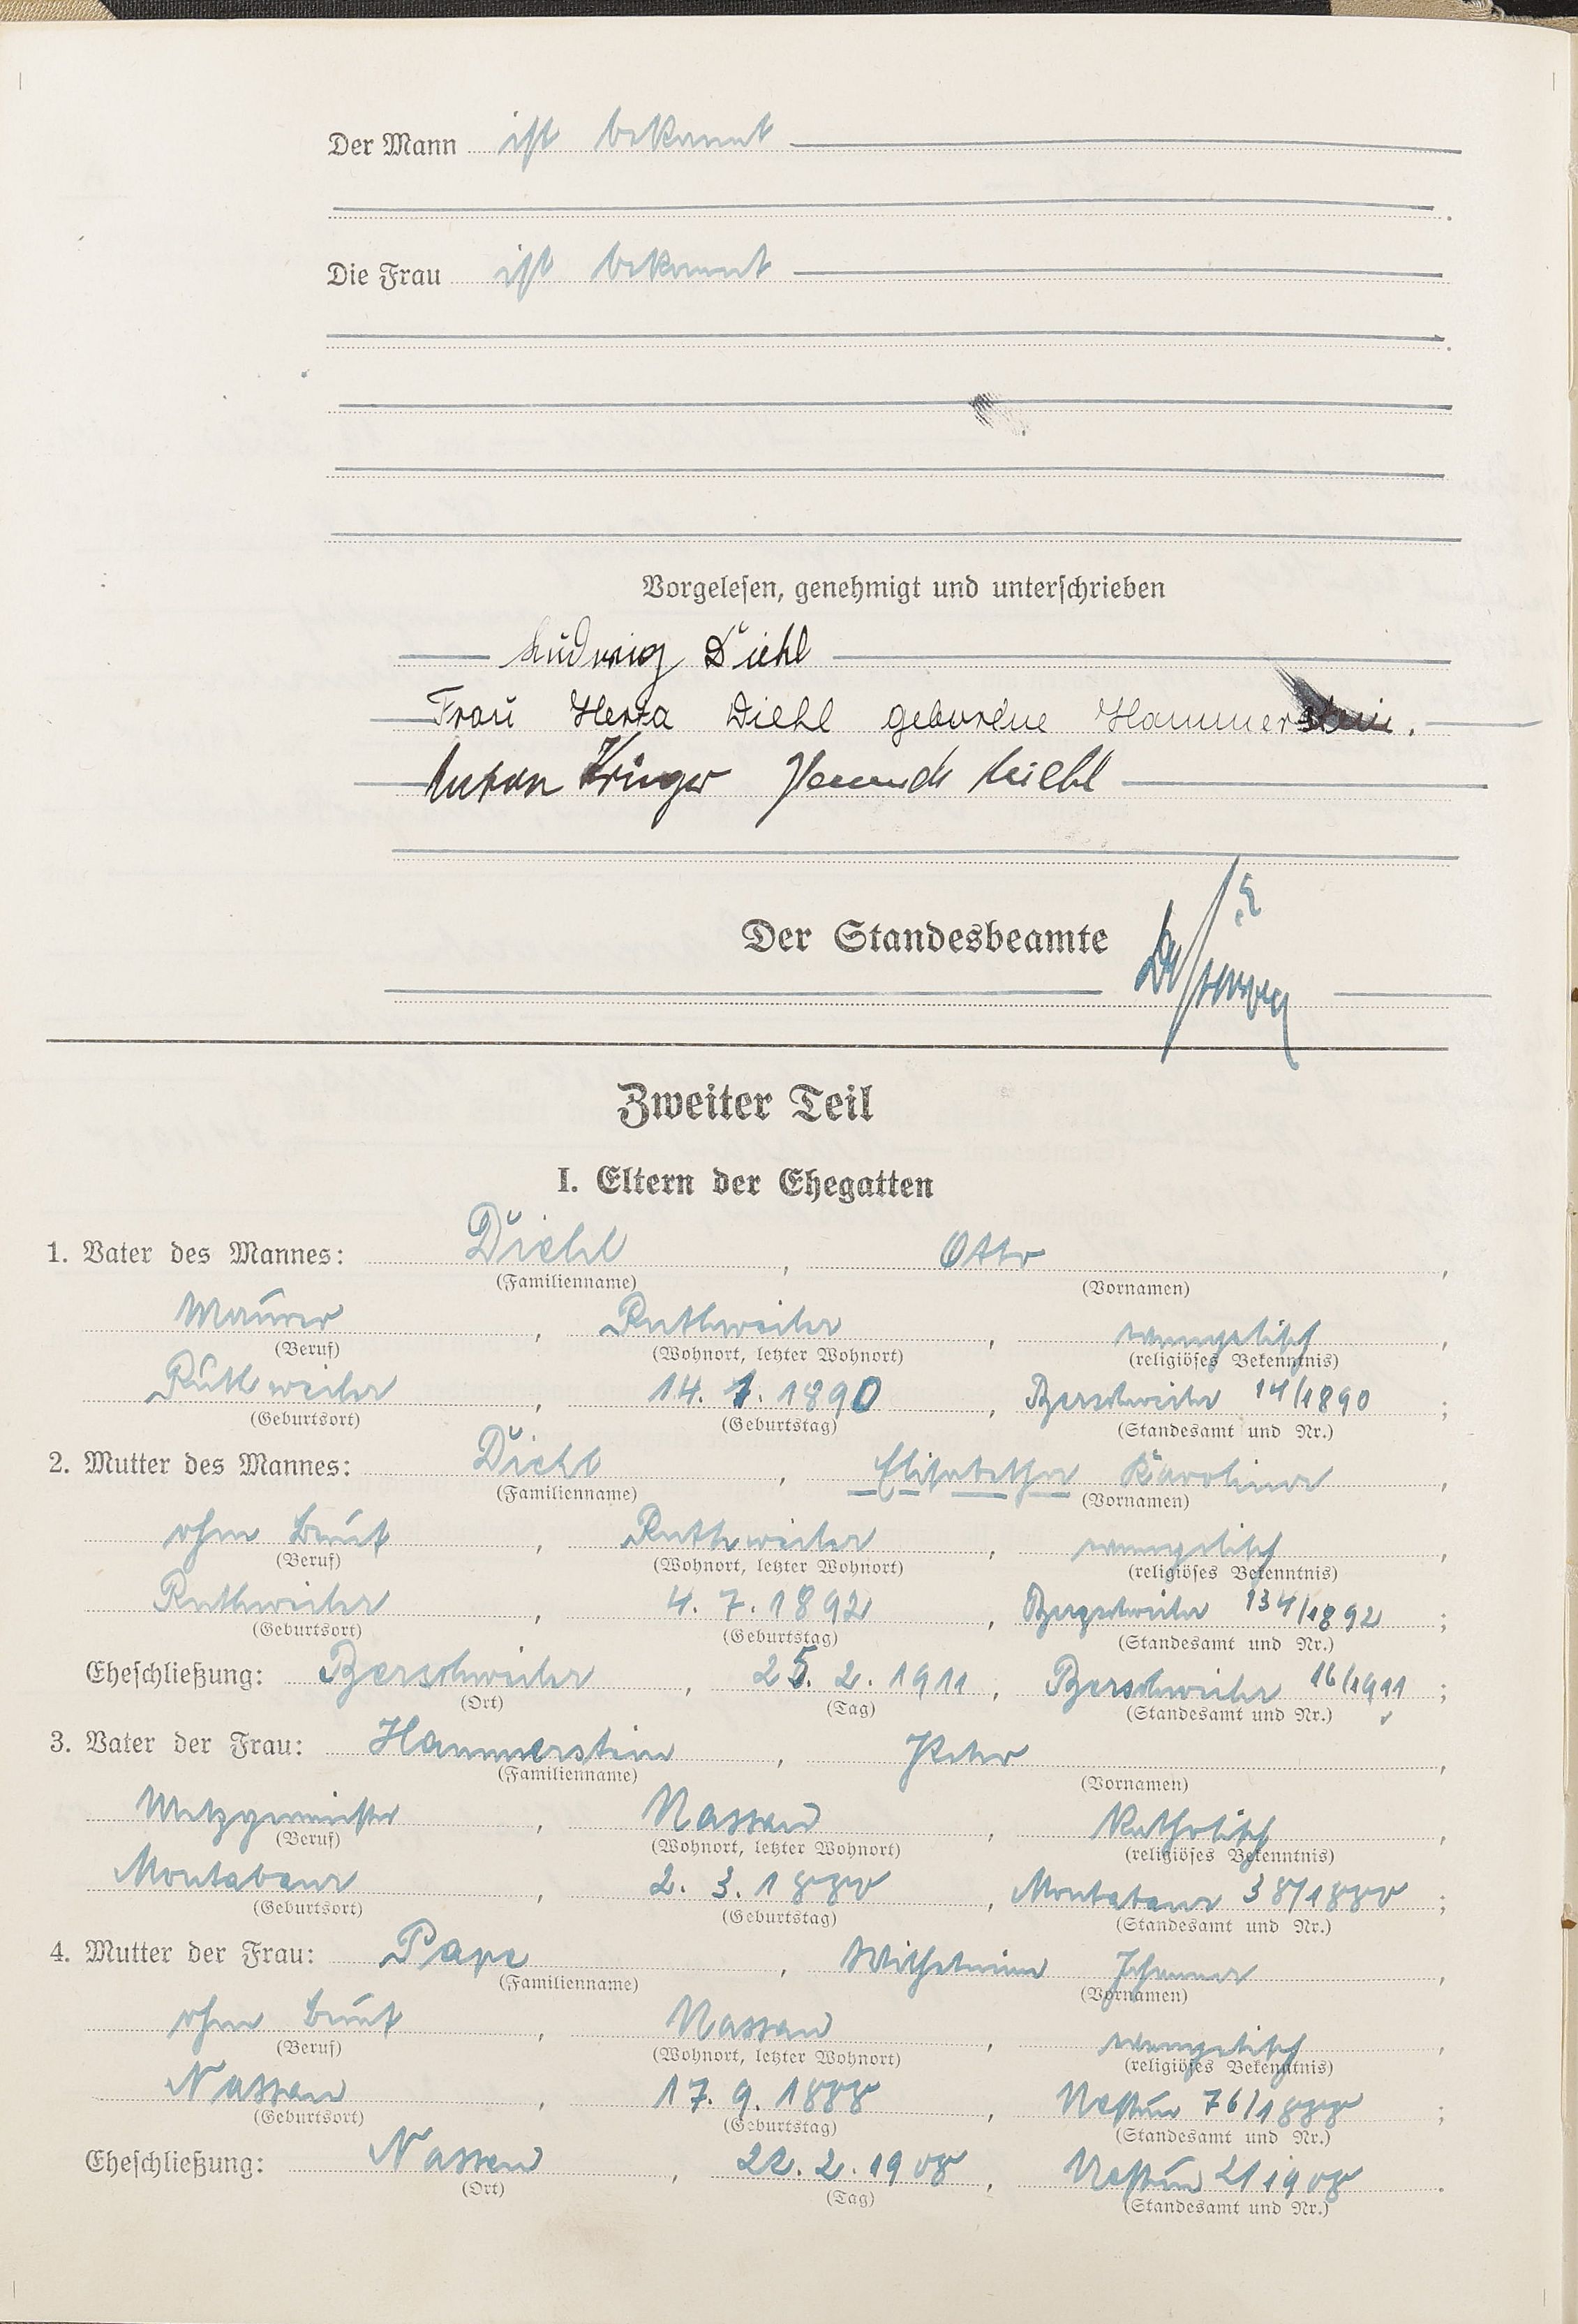 Der Mann ist bekannt
Die Frau ist bekannt
Vorgelesen, genehmigt und unterschrieben
Ludwig Diehl
Frau Herta Diehl geborene Hammerstein.
Anton Krüger Diehl
Der Standesbeamte
Zweiter Teil
I. Eltern der Ehegatten
1. Vater des Mannes: Diehl, Otto,
(Familienname) (Vornamen)
Maurer, Ruthweiler, evangelisch,
(Beruf) (Wohnort, letzter Wohnort) (religiöses Bekenntnis)
Ruthweiler, 14. 1. 1890, Berschweiler 14/1890;
(Geburtsort) (Geburtstag) (Standesamt und Nr.)
2. Mutter des Mannes: Diehl, Elisabetha Karolina,
(Familienname) (Vornamen)
ohne Beruf, Ruthweiler, evangelisch,
(Beruf) (Wohnort, letzter Wohnort) (religiöses Bekenntnis)
Ruthweiler, 4. 7. 1892, Berschweiler 134/1892;
(Geburtsort) (Geburtstag) (Standesamt und Nr.)
Eheschließung: Berschweiler, 25. 2. 1911, Berschweiler 16/1911;
(Ort) (Tag) (Standesamt und Nr.)
3. Vater der Frau: Hammerstein, Peter,
(Familienname) (Vornamen)
Metzgermeister, Nassau, katholisch,
(Beruf) (Wohnort, letzter Wohnort) (religiöses Bekenntnis)
Montabaur, 2. 3. 1880, Montabaur 38/1880;
(Geburtsort) (Geburtstag) (Standesamt und Nr.)
4. Mutter der Frau: Pape, Wilhelmine Johanna,
(Familienname) (Vornamen)
ohne Beruf, Nassau, evangelisch,
(Beruf) (Wohnort, letzter Wohnort) (religiöses Bekenntnis)
Nassau, 17. 9. 1888, Nassau 76/1888;
(Geburtsort) (Geburtstag) (Standesamt und Nr.)
Eheschließung: Nassau, 22. 2. 1908, Nassau 1908.
(Ort) (Tag) (Standesamt und Nr.)